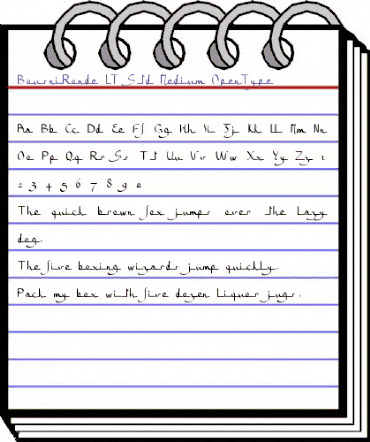 BeurniRonde LT Std Medium OpenType
Aa Bb Cc Dd Ee Ff Gg Hh Ii Jj Kk Ll Mm Nn
Oo Pp Qq Rr Ss Tt Uu Vv Ww Xx Yy Zz 1
2 3 4 5 6 7 8 9 0
The quick brown fox jumps over the lazy
dog.
The five boxing wizards jump quickly.
Pack my box with five dozen liquor jugs.